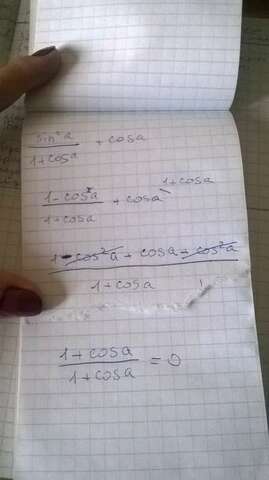 sin²a/1+cosa + cosa
1-cos²a/1+cosa + cosa \ 1+cosa
1-cos²a+cosa+cos²a/1+cosa
1+cosa/1+cosa = 0